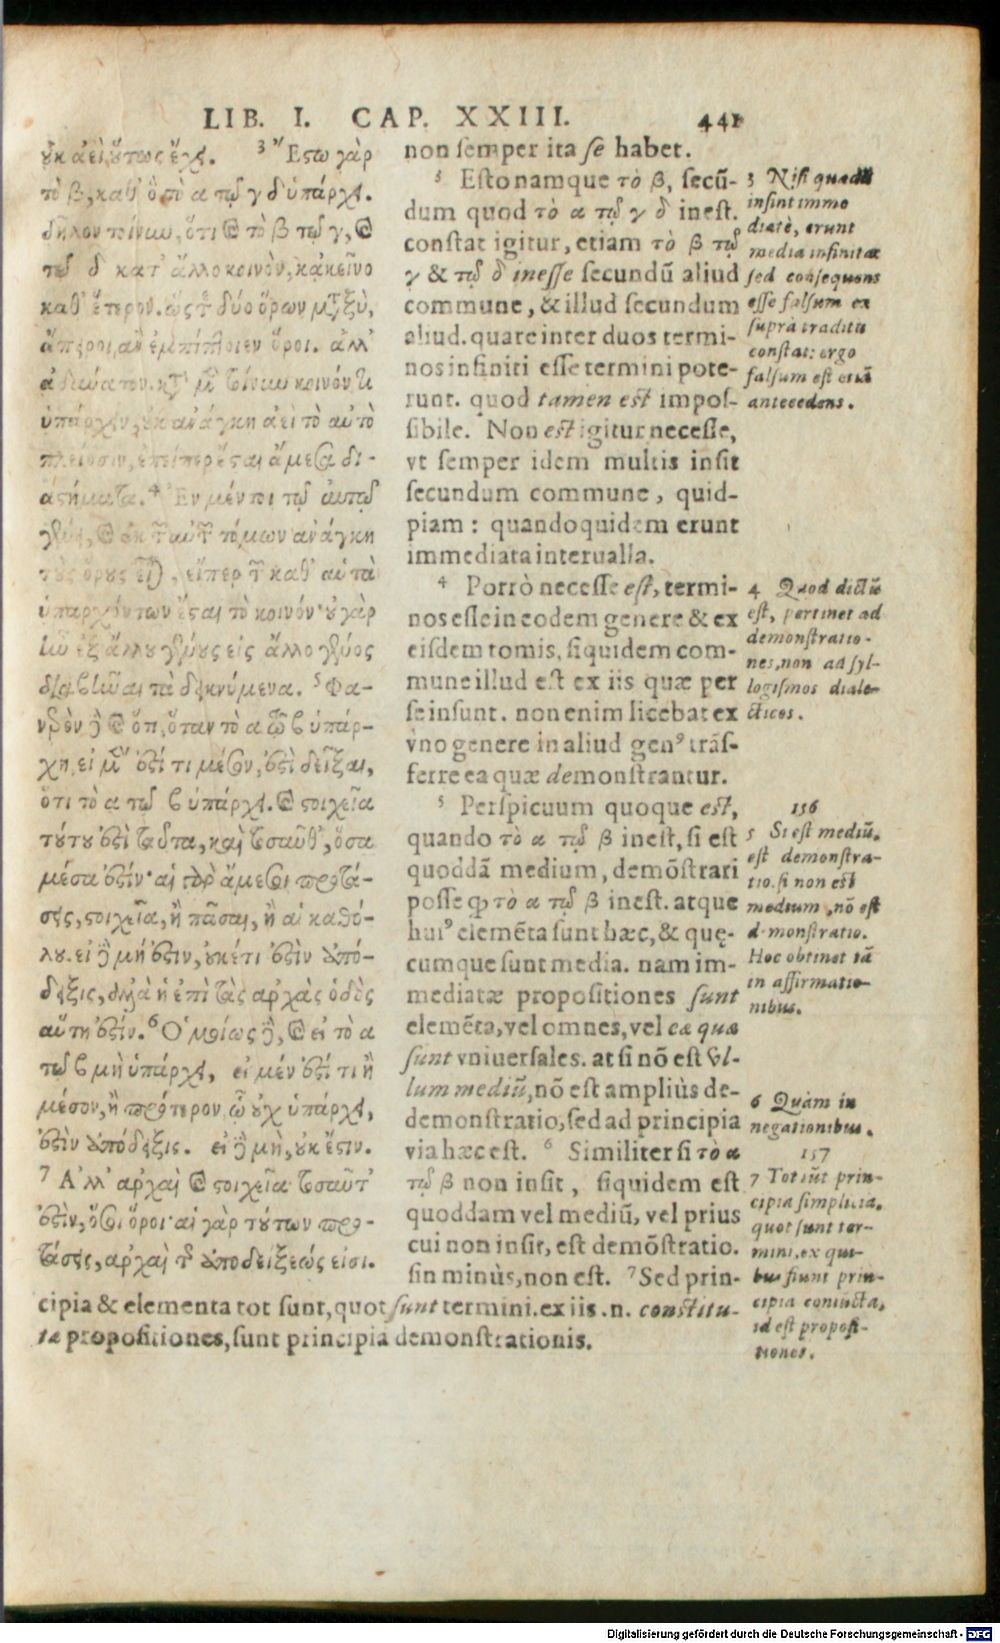 LIB. I. CAP. XXIII. 441
οὐκ ἀεὶ οὕτως ἔχει. 3 Ἔστω γὰρ
τὸ β, καθ' ὃ τὸ α τῷ γ δ ὑπάρχει.
δῆλον τοίνυν, ὅτι καὶ τὸ β τῷ γ, καὶ
τῷ δ κατ' ἄλλο κοινὸν, κἀκεῖνο
καθ' ἕτερον. ὥστε δύο ὅρων μεταξὺ,
ἄπειροι ἂν ἐμπίπτοιεν ὅροι. ἀλλ'
ἀδύνατον. κατὰ μὲν τοίνυν κοινόν τι
ὑπάρχειν, οὐκ ἀνάγκη ἀεὶ τὸ αὐτὸ
πλείοσιν, ἐπείπερ ἔσται ἄμεσα δι-
αστήματα. 4 Ἐν μέντοι τῷ αὐτῷ
γένει, καὶ ἐκ τῶν αὐτῶν τόμων ἀνάγκη
τοὺς ὅρους εἶναι, εἴπερ τῶν καθ' αὑτὰ
ὑπαρχόντων ἔσται τὸ κοινόν· οὐ γὰρ
ἦν ἐξ ἄλλου γένους εἰς ἄλλο γένος
διαβῆναι τὰ δεικνύμενα. 5 Φα-
νερὸν δὲ καὶ ὅτι, ὅταν τὸ α τῷ β ὑπάρ-
χῃ, εἰ μέν ἐστί τι μέσον, ἐστὶ δεῖξαι,
ὅτι τὸ α τῷ β ὑπάρχει. καὶ στοιχεῖα
τούτου ἐστὶ ταῦτα, καὶ τοσαῦθ', ὅσα
μέσα ἐστίν· αἱ γὰρ ἄμεσοι προτά-
σεις, στοιχεῖα, ἢ πᾶσαι, ἢ αἱ καθό-
λου. εἰ δὲ μή ἐστιν, οὐκέτι ἐστὶν ἀπό-
δειξις, ἀλλὰ ἡ ἐπὶ τὰς ἀρχὰς ὁδὸς
αὕτη ἐστίν. 6 Ὁμοίως δὲ, καὶ εἰ τὸ α
τῷ β μὴ ὑπάρχει, εἰ μέν ἐστί τι ἢ
μέσον, ἢ πρότερον ᾧ οὐχ ὑπάρχει,
ἐστὶν ἀπόδειξις. εἰ δὲ μὴ, οὐκ ἔστιν.
7 Ἀλλ' ἀρχαὶ καὶ στοιχεῖα τοσαῦτ'
ἐστὶν, ὅσοι ὅροι· αἱ γὰρ τούτων προ-
τάσεις, ἀρχαὶ τῆς ἀποδείξεώς εἰσι.
non semper ita se habet.
3 Esto namque τὸ β, secũ-
dum quod τὸ α τῷ γ δ inest.
constat igitur, etiam τὸ β τῷ
γ & τῷ δ inesse secundũ aliud
commune, & illud secundum
aliud. quare inter duos termi-
nos infiniti esse termini pote-
runt. quod tamen est impos-
sibile. Non est igitur necesse,
vt semper idem multis insit
secundum commune, quid-
piam: quandoquidem erunt
immediata interualla.
4 Porrò necesse est, termi-
nos esse in eodem genere & ex
eisdem tomis, siquidem com-
mune illud est ex iis quæ per
se insunt. non enim licebat ex
vno genere in aliud genꝰ trãs-
ferre ea quæ demonstrantur.
5 Perspicuum quoque est,
quando τὸ α τῷ β inest, si est
quoddã medium, demõstrari
posse ꝙ τὸ α τῷ β inest. atque
huiꝰ elemẽta sunt hæc, & quę-
cumque sunt media. nam im-
mediatæ propositiones sunt
elemẽta, vel omnes, vel eæ quæ
sunt vniuersales. at si nõ est vl-
lum mediũ, nõ est ampliùs de-
demonstratio, sed ad principia
via hæc est. 6 Similiter si τὸ α
τῷ β non insit, siquidem est
quoddam vel mediũ, vel prius
cui non insit, est demõstratio.
sin minùs, non est. 7 Sed prin-
cipia & elementa tot sunt, quot sunt termini. ex iis .n. constitu-
tæ propositiones, sunt principia demonstrationis.
3 Nisi quædã
insint imme
diatè, erunt
media infinita:
sed consequens
esse falsum ex
supra traditis
constat: ergo
falsum est etiã
antecedens.
4 Quod dictũ
est, pertinet ad
demonstratio-
nes, non ad syl-
logismos diale-
cticos.
156
5 Si est mediũ,
est demonstra-
tio. si non est
medium, nõ est
demonstratio.
Hoc obtinet tã
in affirmatio-
nibus.
6 Quàm in
negationibus.
157
7 Tot sũt prin-
cipia simplicia,
quot sunt ter-
mini, ex qui-
bus fiunt prin-
cipia coniuncta,
id est proposi-
tiones.
Digitalisierung gefördert durch die Deutsche Forschungsgemeinschaft - DFG